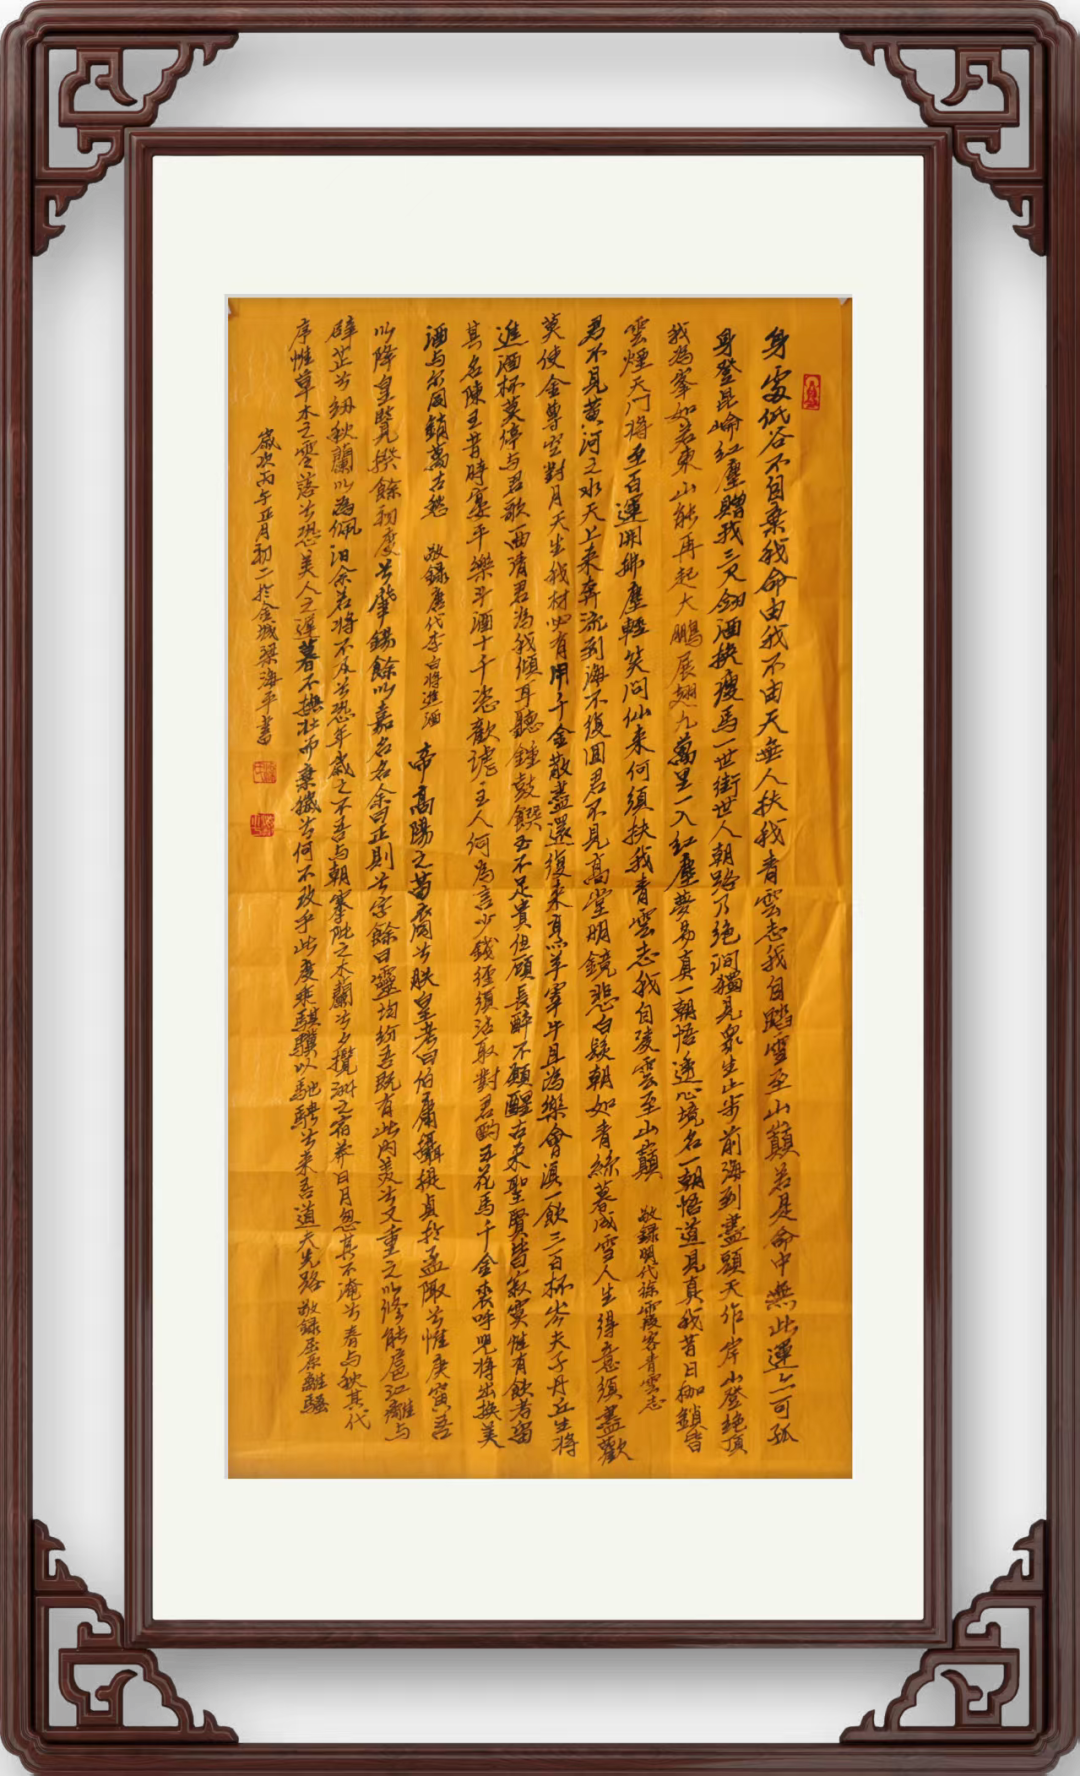 身處低谷不自棄我命由我不由天無人扶我青雲志我自踏雪至山巔若是命中無此運亦可孤
身登昆崙紅塵贈我三尺劍酒換瘦馬一世街世人朝路乃絕澗獨見眾生止步前海到盡頭天作岸山登絕頂
我為峯如若東山能再起大鵬展翅九萬里一入紅塵夢易真一朝悟透心境名一朝悟道見真我昔日枷鎖皆
雲煙天門將至百運開拂塵輕笑問仙来何須扶我青雲志我自淩雲至山巔 敬録明代徐霞客青雲志
君不見黃河之水天上来奔流到海不復回君不見高堂明鏡悲白髮朝如青絲暮成雪人生得意須盡歡
莫使金尊空對月天生我材必有用千金散盡還復来烹羊宰牛且為樂會湏一飲三百杯岑夫子丹丘生將
進酒杯莫停与君歌一曲請君為我傾耳聽鐘鼓饌玉不足貴但願長醉不願醒古来聖賢皆寂寞惟有飲者留
其名陳王昔時宴平樂斗酒十千恣歡謔主人何為言少錢徑須沽取對君酌五花馬千金裘呼兒將出換美
酒与尔同銷萬古愁 敬録唐代李白將進酒 帝高陽之苗裔兮朕皇考曰伯庸攝提貞於孟陬兮惟庚寅吾
以降皇覽揆餘初度兮肇錫餘以嘉名名余曰正則兮字餘曰靈均紛吾既有此內美兮又重之以修能扈江離与
辟芷兮紉秋蘭以為佩汩余若將不及兮恐年歲之不吾与朝搴阰之木蘭兮夕攬洲之宿莽日月忽其不淹兮春与秋其代
序惟草木之零落兮恐美人之遲暮不撫壯而棄穢兮何不改乎此度乘騏驥以馳騁兮来吾道夫先路 敬録屈原離騷
歲次丙午正月初二於金城梁海平書